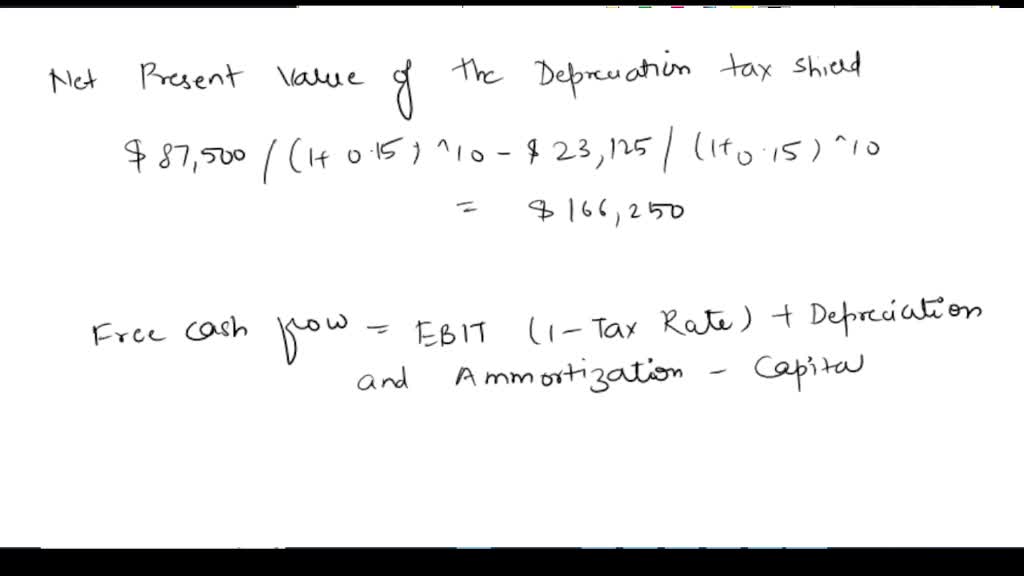 Net Present Value of the Depreciation tax shield
$ 87,500 / (1+ 0.15) ^10 - $ 23,125 / (1+0.15) ^10
= $ 166,250
Free cash flow = EBIT (1 - Tax Rate) + Depreciation
and Ammortization - Capital